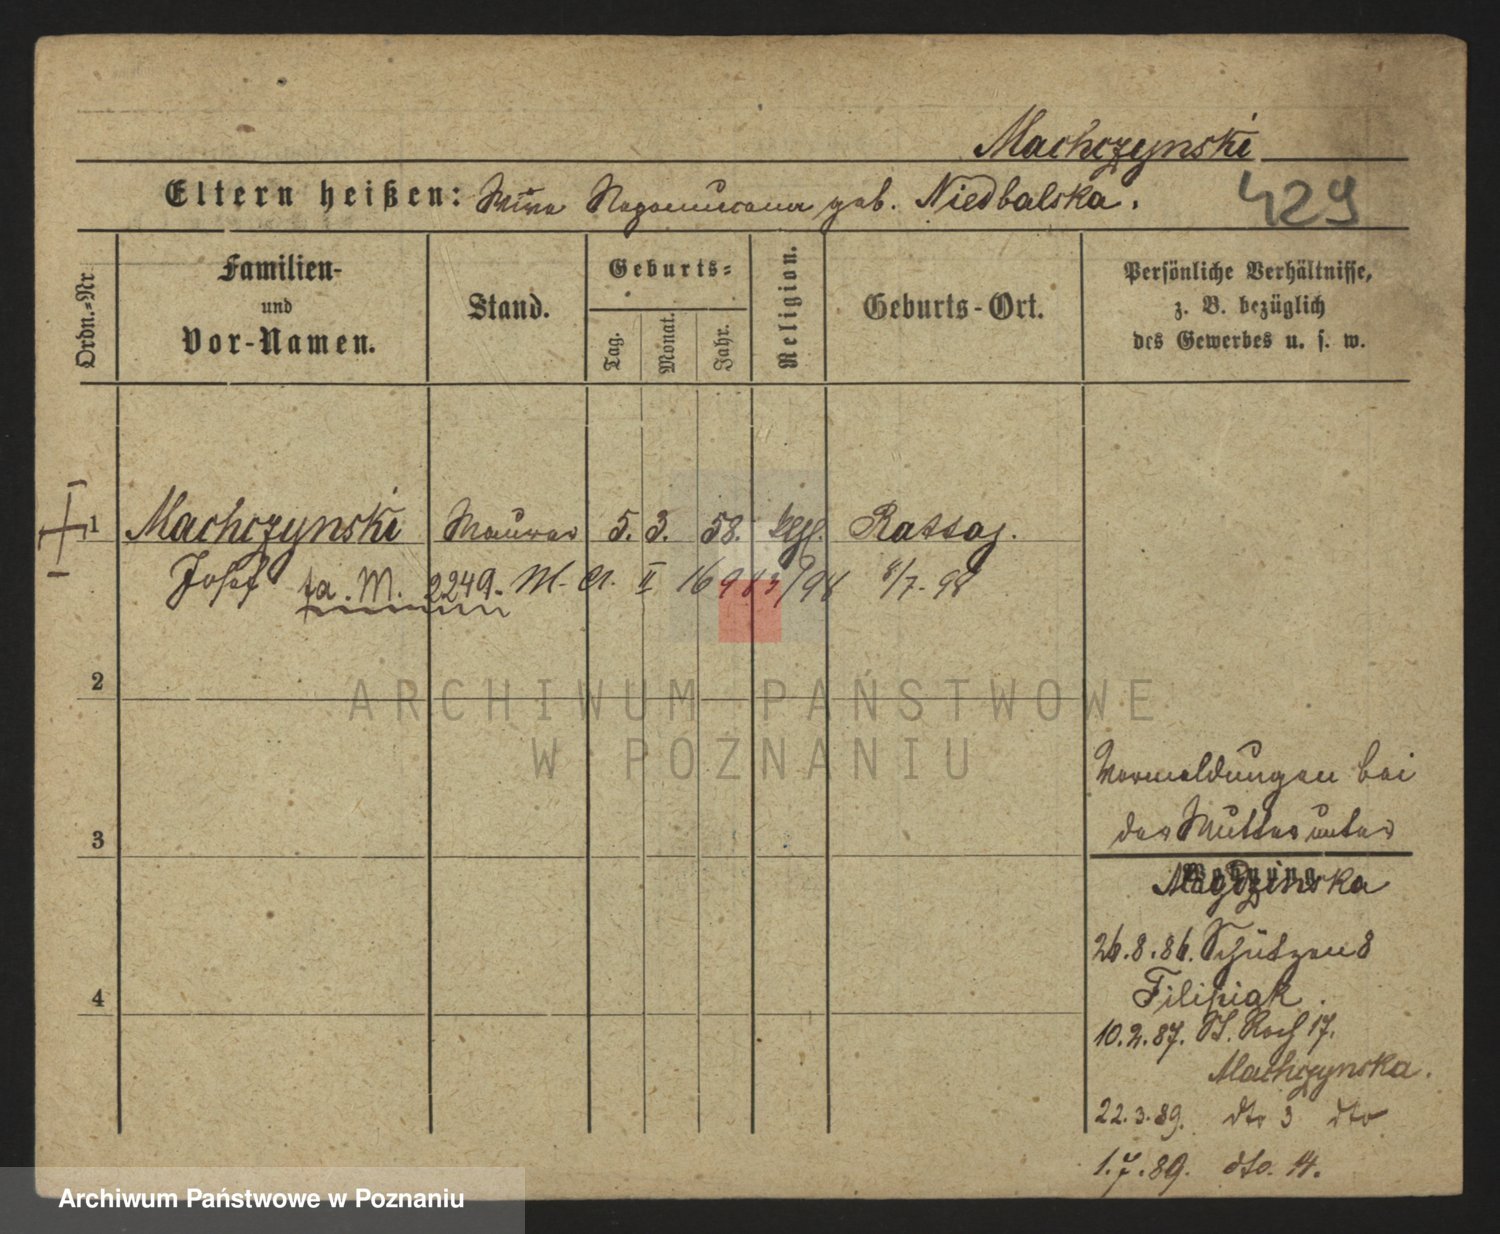 Machczynski
Eltern heißen: geb. Niedbalska.
429
Ordn.-Nr.
Familien-
und
Vor-Namen.
Stand.
Geburts-
Tag.
Monat.
Jahr.
Religion.
Geburts-Ort.
Persönliche Verhältnisse,
z. B. bezüglich
des Gewerbes u. s. w.
1 Machczynski Maurer 5. 3. 58. Rattaj.
Josef fa. M. 2249. M. A. II 16913/98 8/7.98
2
3
4
Vormeldungen bei
der Mutter unter
Wohnung
Magdzinska
26.8.86. Schützen 8
Filipiak.
10.2.87. St. Roch 17.
Machczynska.
22.3.89. dto 3 dto
1.7.89. dto. 14.
ARCHIWUM PAŃSTWOWE
W POZNANIU
Archiwum Państwowe w Poznaniu